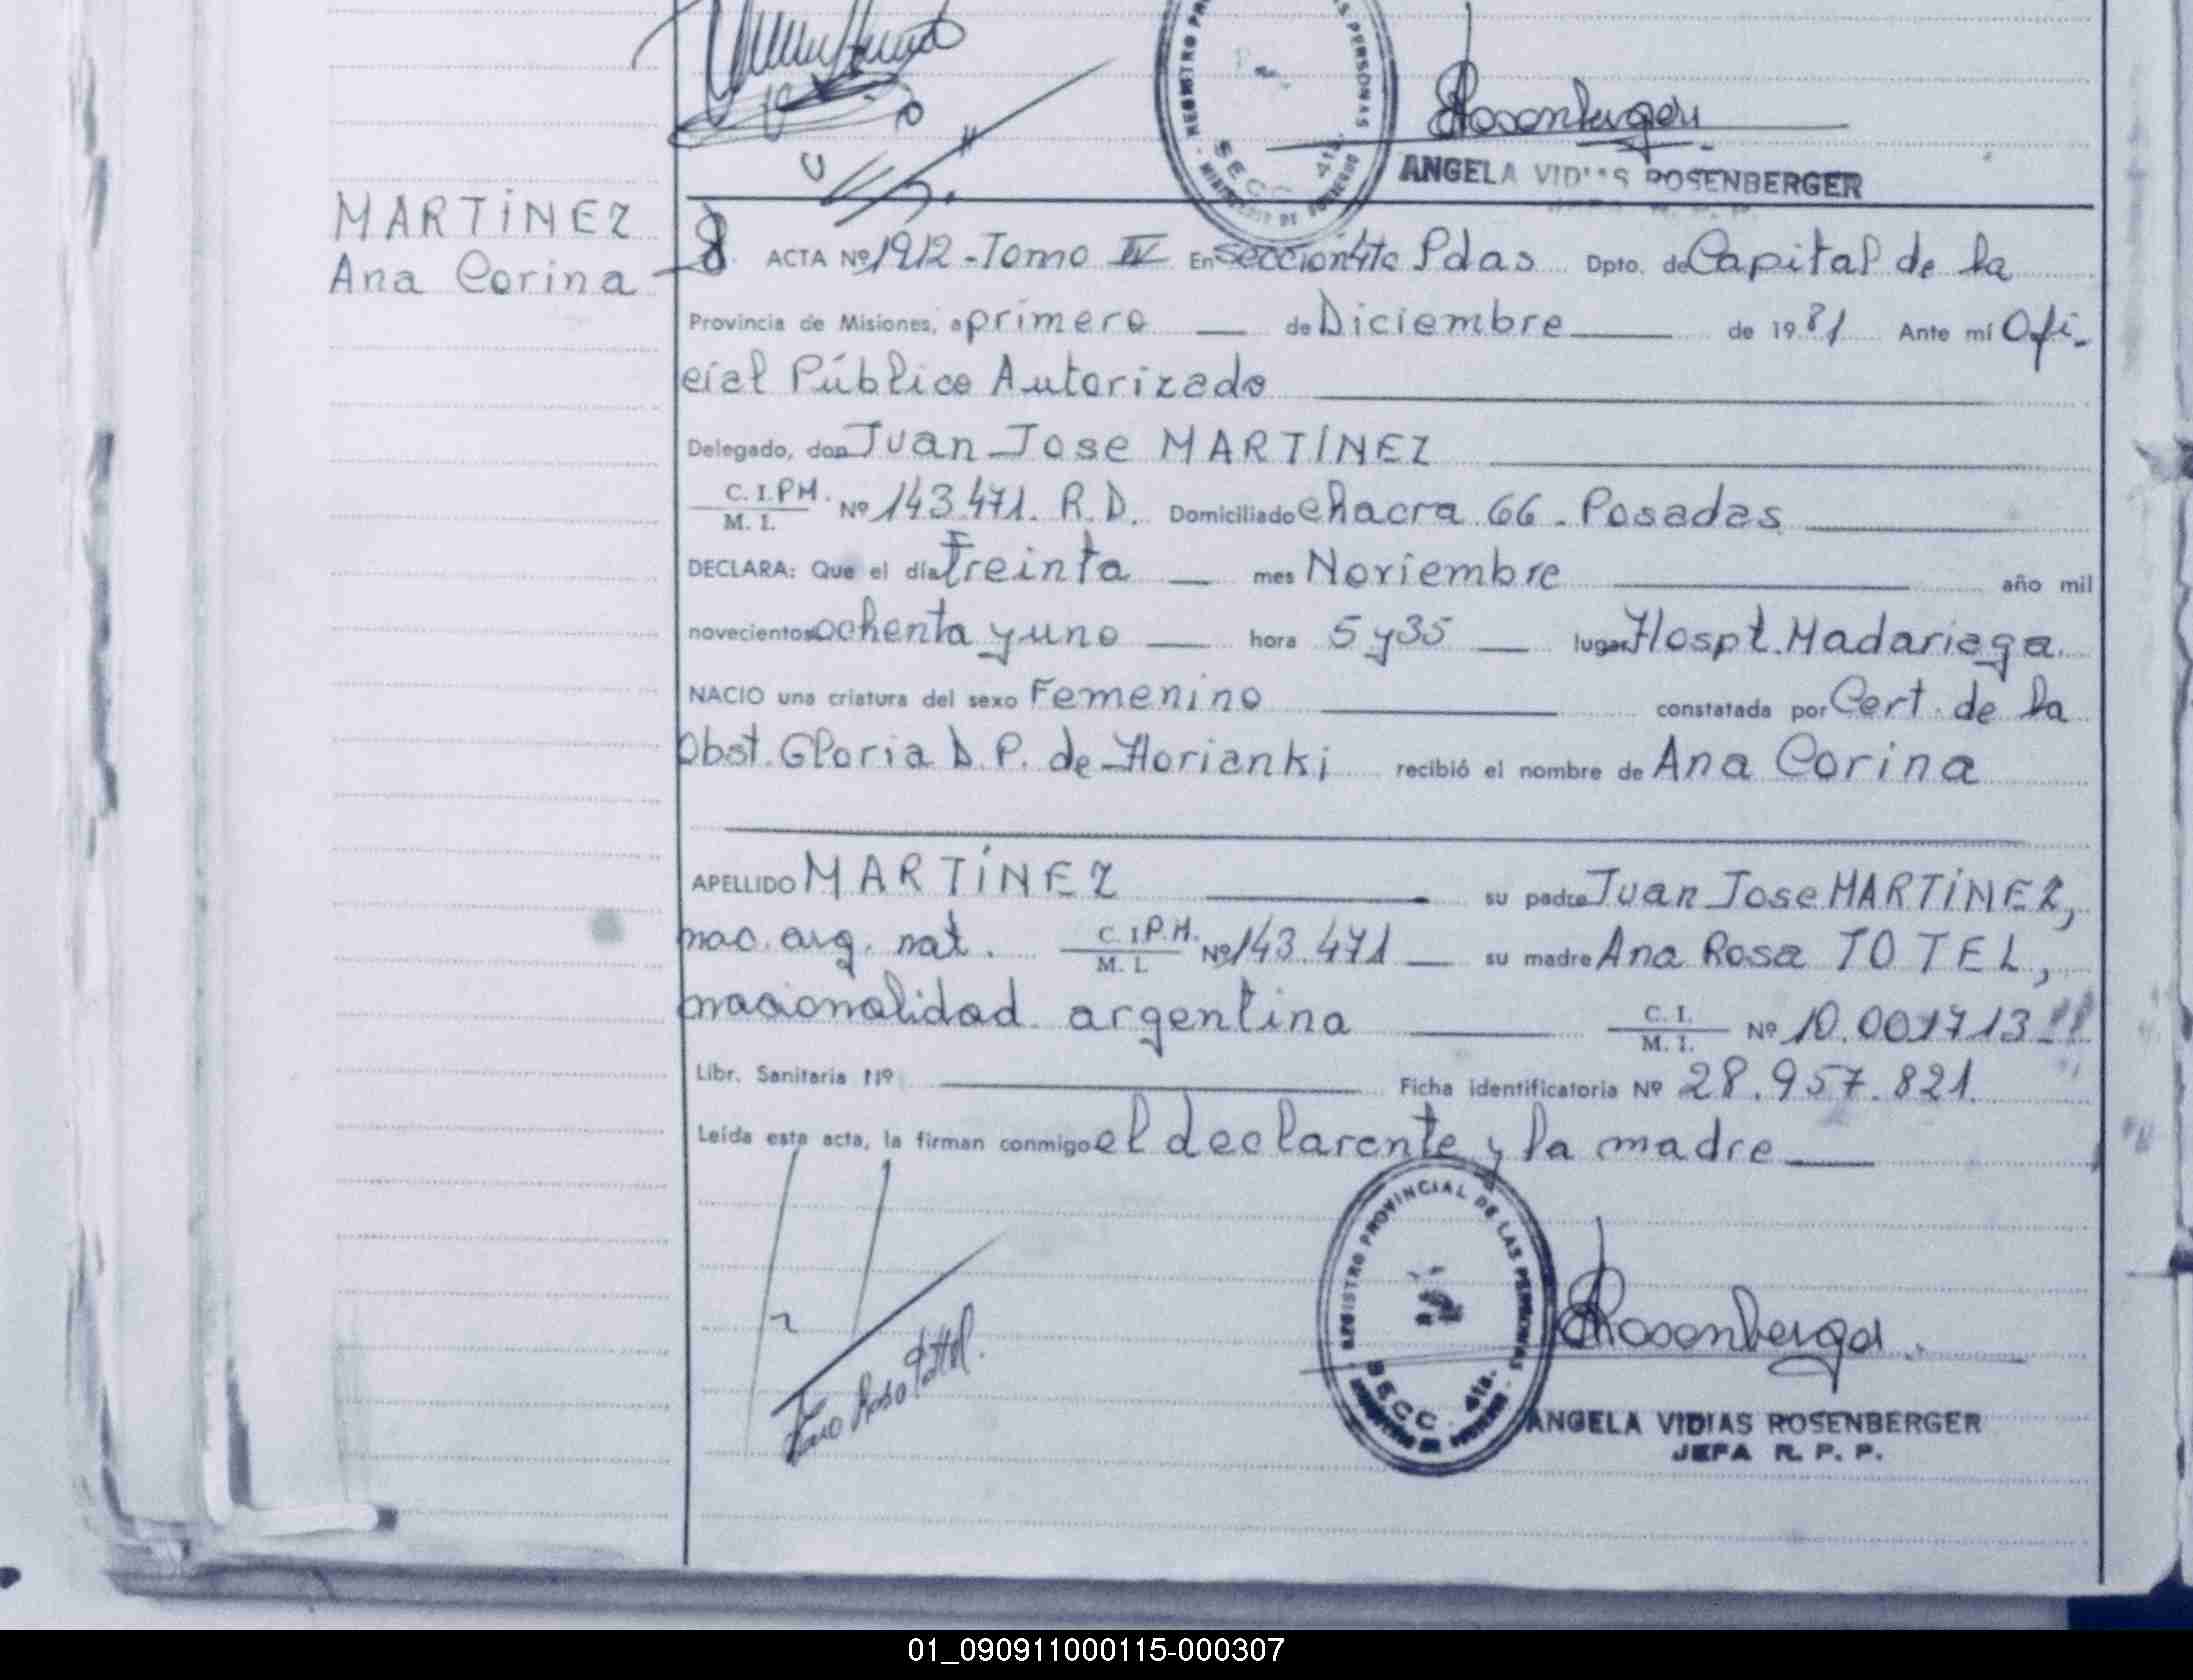 REGISTRO PERSONAS
SECC 4ta.
Rosenberger
ANGELA VIDIAS ROSENBERGER
MARTÍNEZ
Ana Corina
ACTA Nº 1912 - Tomo IV En Sección 4ta Pdas Dpto. de Capital de la
Provincia de Misiones, a primero de Diciembre de 1981 Ante mí Ofi-
cial Público Autorizado
Delegado, don Juan Jose MARTÍNEZ
C. I. P.M. M. I. Nº 143.471. R.D. Domiciliado Chacra 66 - Posadas
DECLARA: Que el día Treinta mes Noviembre año mil
novecientos ochenta y uno hora 5 y 35 lugar Hospt. Madariaga.
NACIO una criatura del sexo Femenino constatada por Cert. de la
Obst. Gloria D. P. de Horianki recibió el nombre de Ana Corina
APELLIDO MARTÍNEZ su padre Juan Jose MARTÍNEZ,
nac. arg. nat. C. I. P.M. M. I. Nº 143.471 su madre Ana Rosa TOTEL,
nacionalidad argentina C. I. M. I. Nº 10.001713
Libr. Sanitaria Nº Ficha identificatoria Nº 28.957.821.
Leída esta acta, la firman conmigo el declarante y la madre
REGISTRO PROVINCIAL DE LAS PERSONAS
SECC. 4ta.
Rosenberger
ANGELA VIDIAS ROSENBERGER
JEFA R. P. P.
01_090911000115-000307